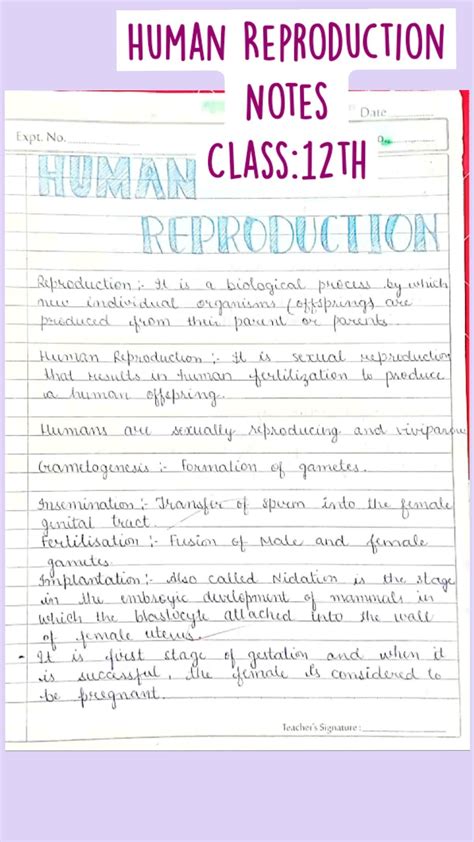 HUMAN REPRODUCTION
NOTES
CLASS:12TH
Date
Expt. No.
HUMAN
REPRODUCTION
Reproduction :- It is a biological process by which
new individual organisms (offsprings) are
produced from their parent or parents
Human Reproduction :- It is sexual reproduction
that results in human fertilization to produce
a human offspring.
Humans are sexually reproducing and viviparous
Gametogenesis :- Formation of gametes.
Insemination :- Transfer of sperm into the female
genital tract.
Fertilisation :- Fusion of Male and female
gametes.
Implantation :- Also called Nidation is the stage
in the embroyic development of mammals in
which the blastocyte attached into the wall
of female uterus.
- It is first stage of gestation and when it
is successful, the female is considered to
be pregnant.
Teacher's Signature :